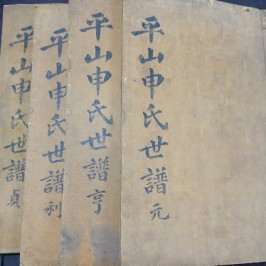 平山申氏世譜 元
平山申氏世譜 亨
平山申氏世譜 利
平山申氏世譜 貞